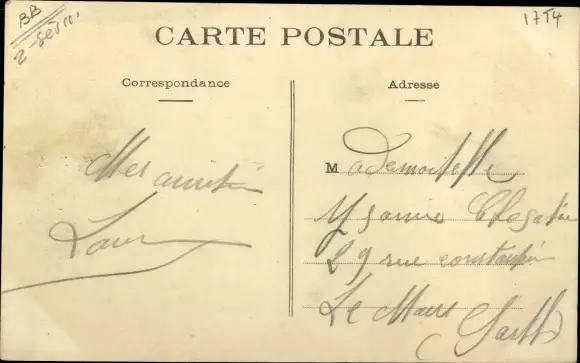 BB
2-Sèvres
17T4
CARTE POSTALE
Correspondance
Adresse
Mes amitiés
Mademoiselle
29 rue constantin
Le Mans
(Sarthe)